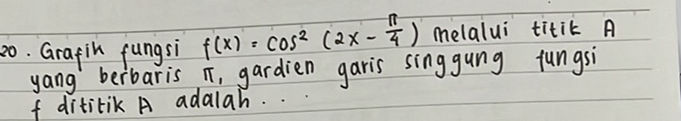 20. Grafik fungsi f(x) = cos² (2x - π/4) melalui titik A
yang berbaris π, gardien garis singgung fungsi
f dititik A adalah...